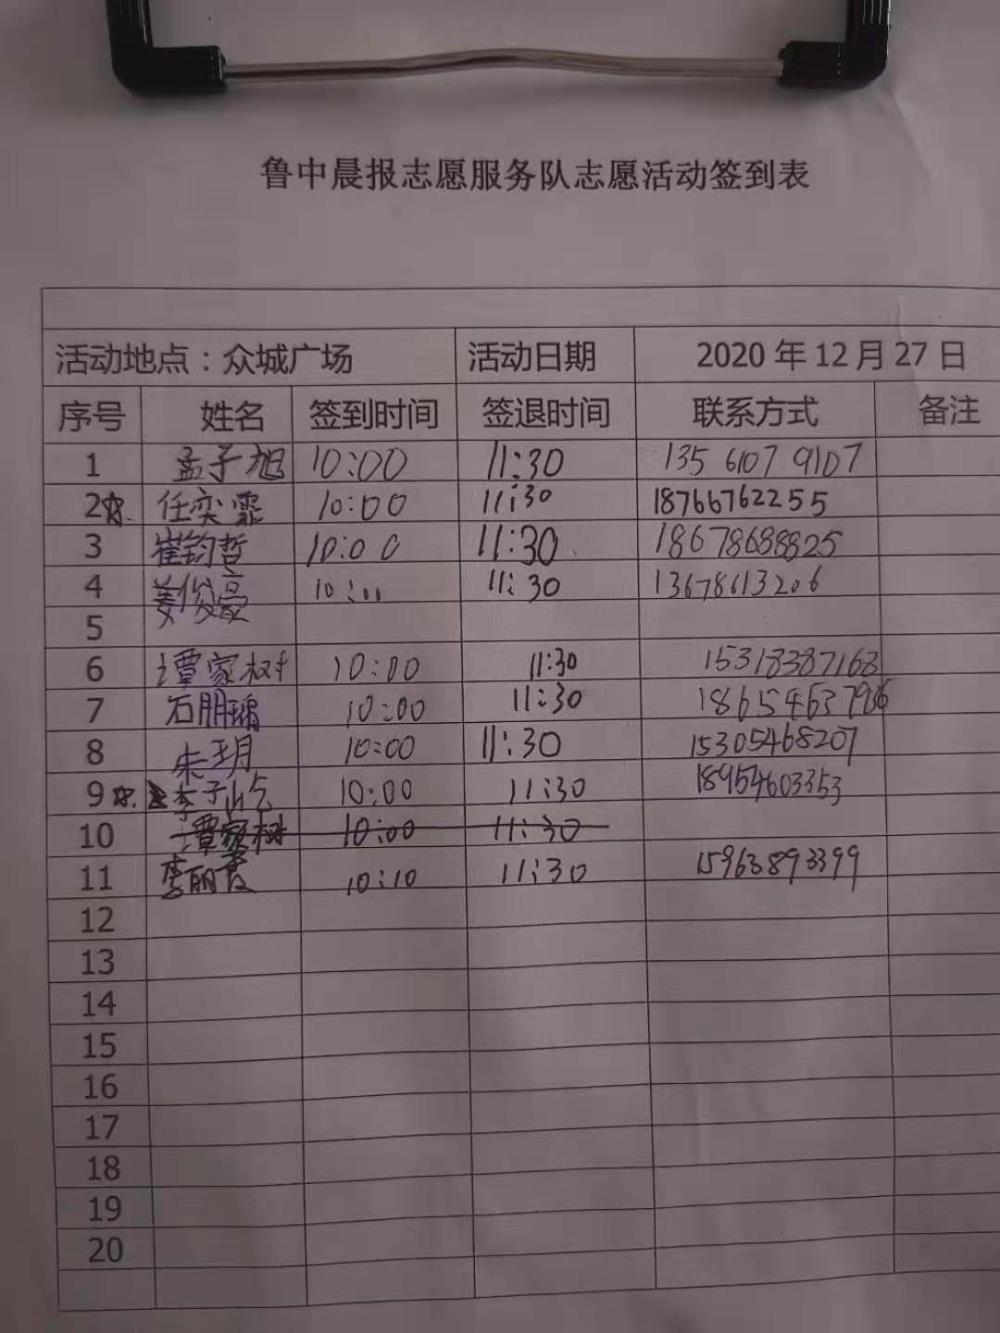 鲁中晨报志愿服务队志愿活动签到表
活动地点：众城广场 活动日期 2020年12月27日
序号 姓名 签到时间 签退时间 联系方式 备注
1 孟子旭 10:00 11:30 135 6107 9107
2☆. 任奕霏 10:00 11:30 18766762255
3 崔钧哲 10:00 11:30 18678688825
4 姜俊豪 10:00 11:30 13678613206
5
6 谭家树 10:00 11:30 15318387168
7 石朋 10:00 11:30
8 朱玥 10:00 11:30 15305468207
9☆. 李子 10:00 11:30 18954603353
10 谭家树 10:00 11:30
11 李丽霞 10:10 11:30 15963893399
12
13
14
15
16
17
18
19
20